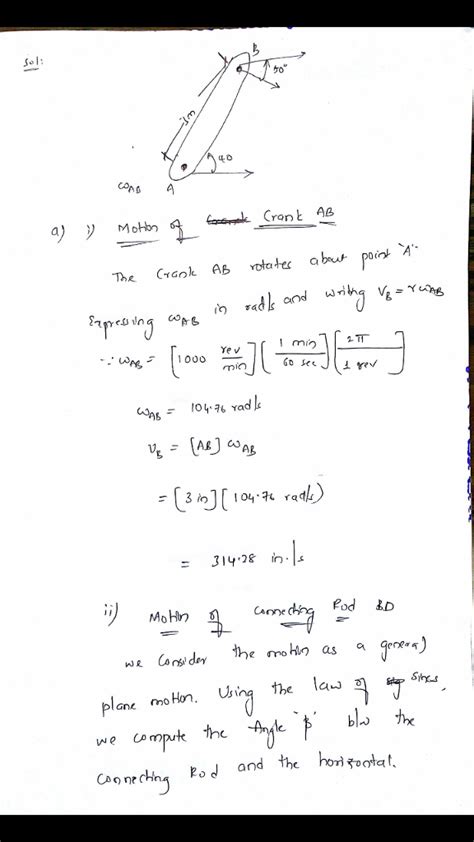 Sol:
B
50°
3in
40
ωAB A
a) i) Motion of Crank AB
The Crank AB rotates about point "A".
Expressing ωAB in rad/s and writing VB = r ωAB
∵ ωAB = [1000 rev/min] [1 min/60 sec] [2π/1 rev]
ωAB = 104.76 rad/s
VB = [AB] ωAB
= [3 in] [104.76 rad/s)
= 314.28 in./s
ii) Motion of Connecting Rod BD
we Consider the motion as a general
plane motion. Using the law of Sines,
we compute the Angle 'β' b/w the
Connecting Rod and the horizontal.